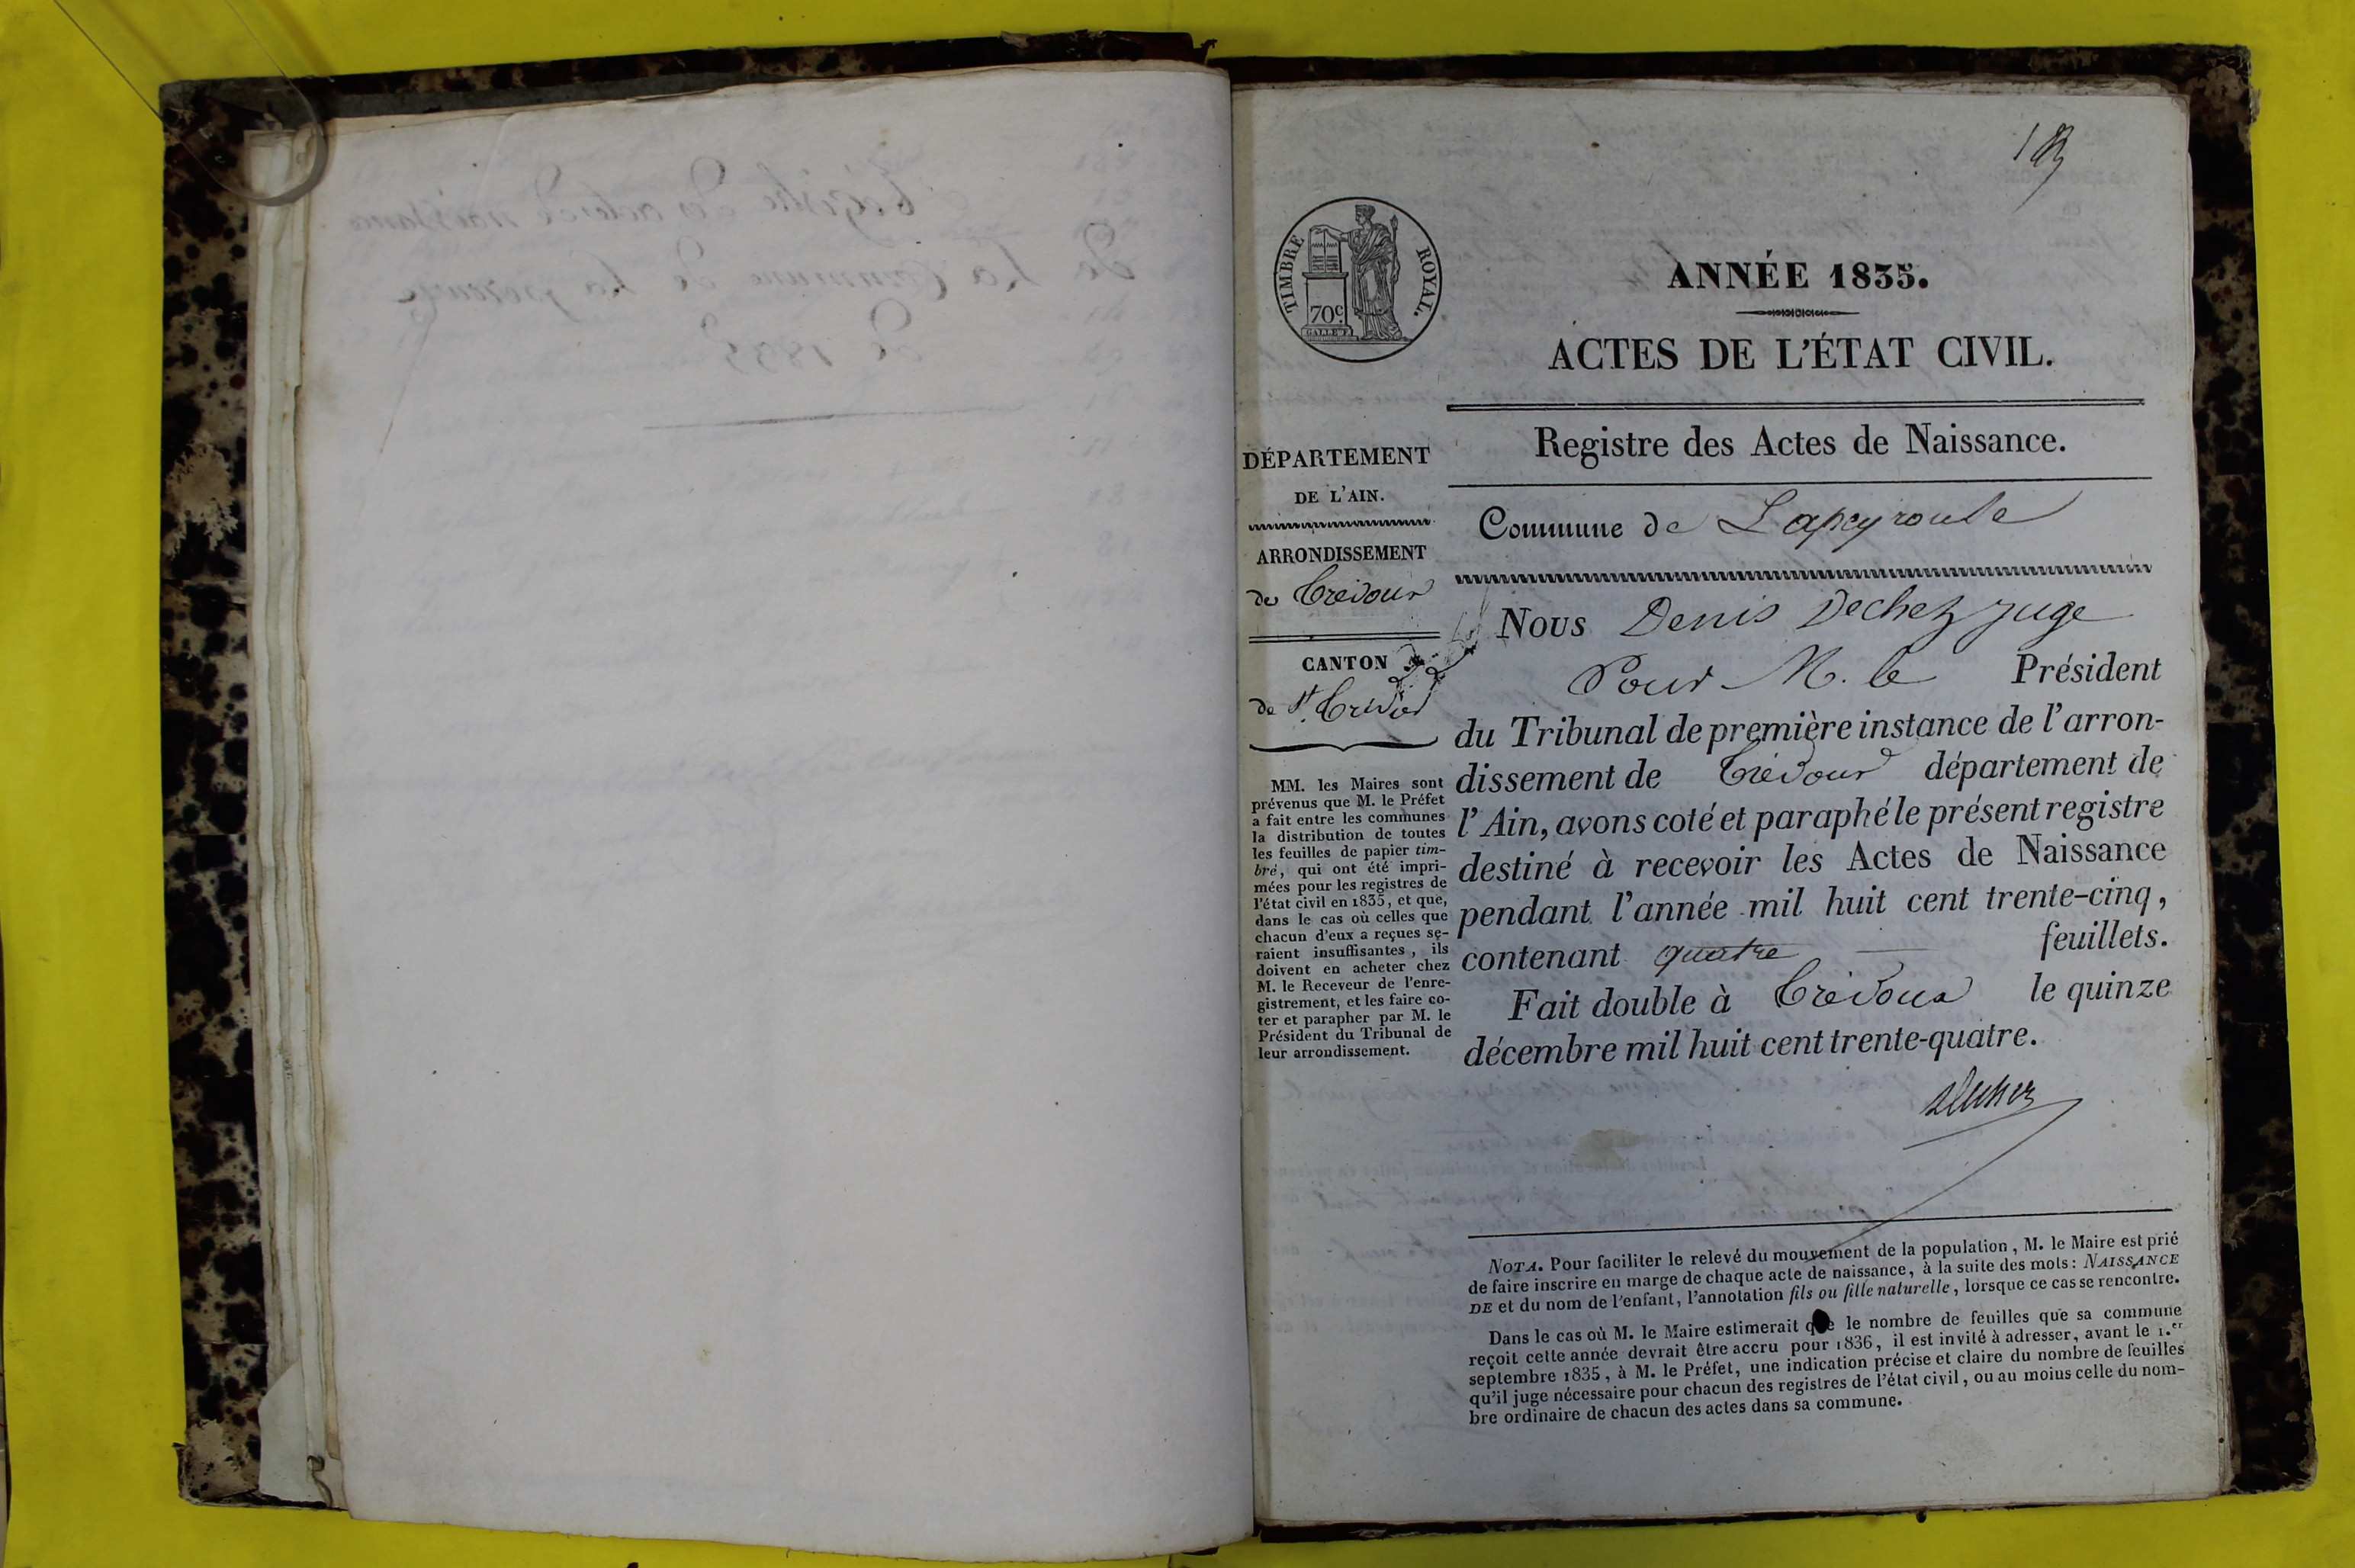 TIMBRE ROYAL.
70c.
ANNÉE 1835.
ACTES DE L'ÉTAT CIVIL.
Registre des Actes de Naissance.
Commune de Lapeyrouse
DÉPARTEMENT
DE L'AIN.
ARRONDISSEMENT
de Trévoux
CANTON
de St. Trivier
MM. les Maires sont
prévenus que M. le Préfet
a fait entre les communes
la distribution de toutes
les feuilles de papier tim-
bré, qui ont été impri-
mées pour les registres de
l'état civil en 1835, et que,
dans le cas où celles que
chacun d'eux a reçues se-
raient insuffisantes, ils
doivent en acheter chez
M. le Receveur de l'enre-
gistrement, et les faire co-
ter et parapher par M. le
Président du Tribunal de
leur arrondissement.
Nous Denis Dechez juge
Pour M. le Président
du Tribunal de première instance de l'arron-
dissement de Trévoux département de
l'Ain, avons coté et paraphé le présent registre
destiné à recevoir les Actes de Naissance
pendant l'année mil huit cent trente-cinq,
contenant quatre feuillets.
Fait double à Trévoux le quinze
décembre mil huit cent trente-quatre.
Dechez
NOTA. Pour faciliter le relevé du mouvement de la population, M. le Maire est prié
de faire inscrire en marge de chaque acte de naissance, à la suite des mots: NAISSANCE
DE et du nom de l'enfant, l'annotation fils ou fille naturelle, lorsque ce cas se rencontre.
Dans le cas où M. le Maire estimerait que le nombre de feuilles que sa commune
reçoit cette année devrait être accru pour 1836, il est invité à adresser, avant le 1.er
septembre 1835, à M. le Préfet, une indication précise et claire du nombre de feuilles
qu'il juge nécessaire pour chacun des registres de l'état civil, ou au moins celle du nom-
bre ordinaire de chacun des actes dans sa commune.